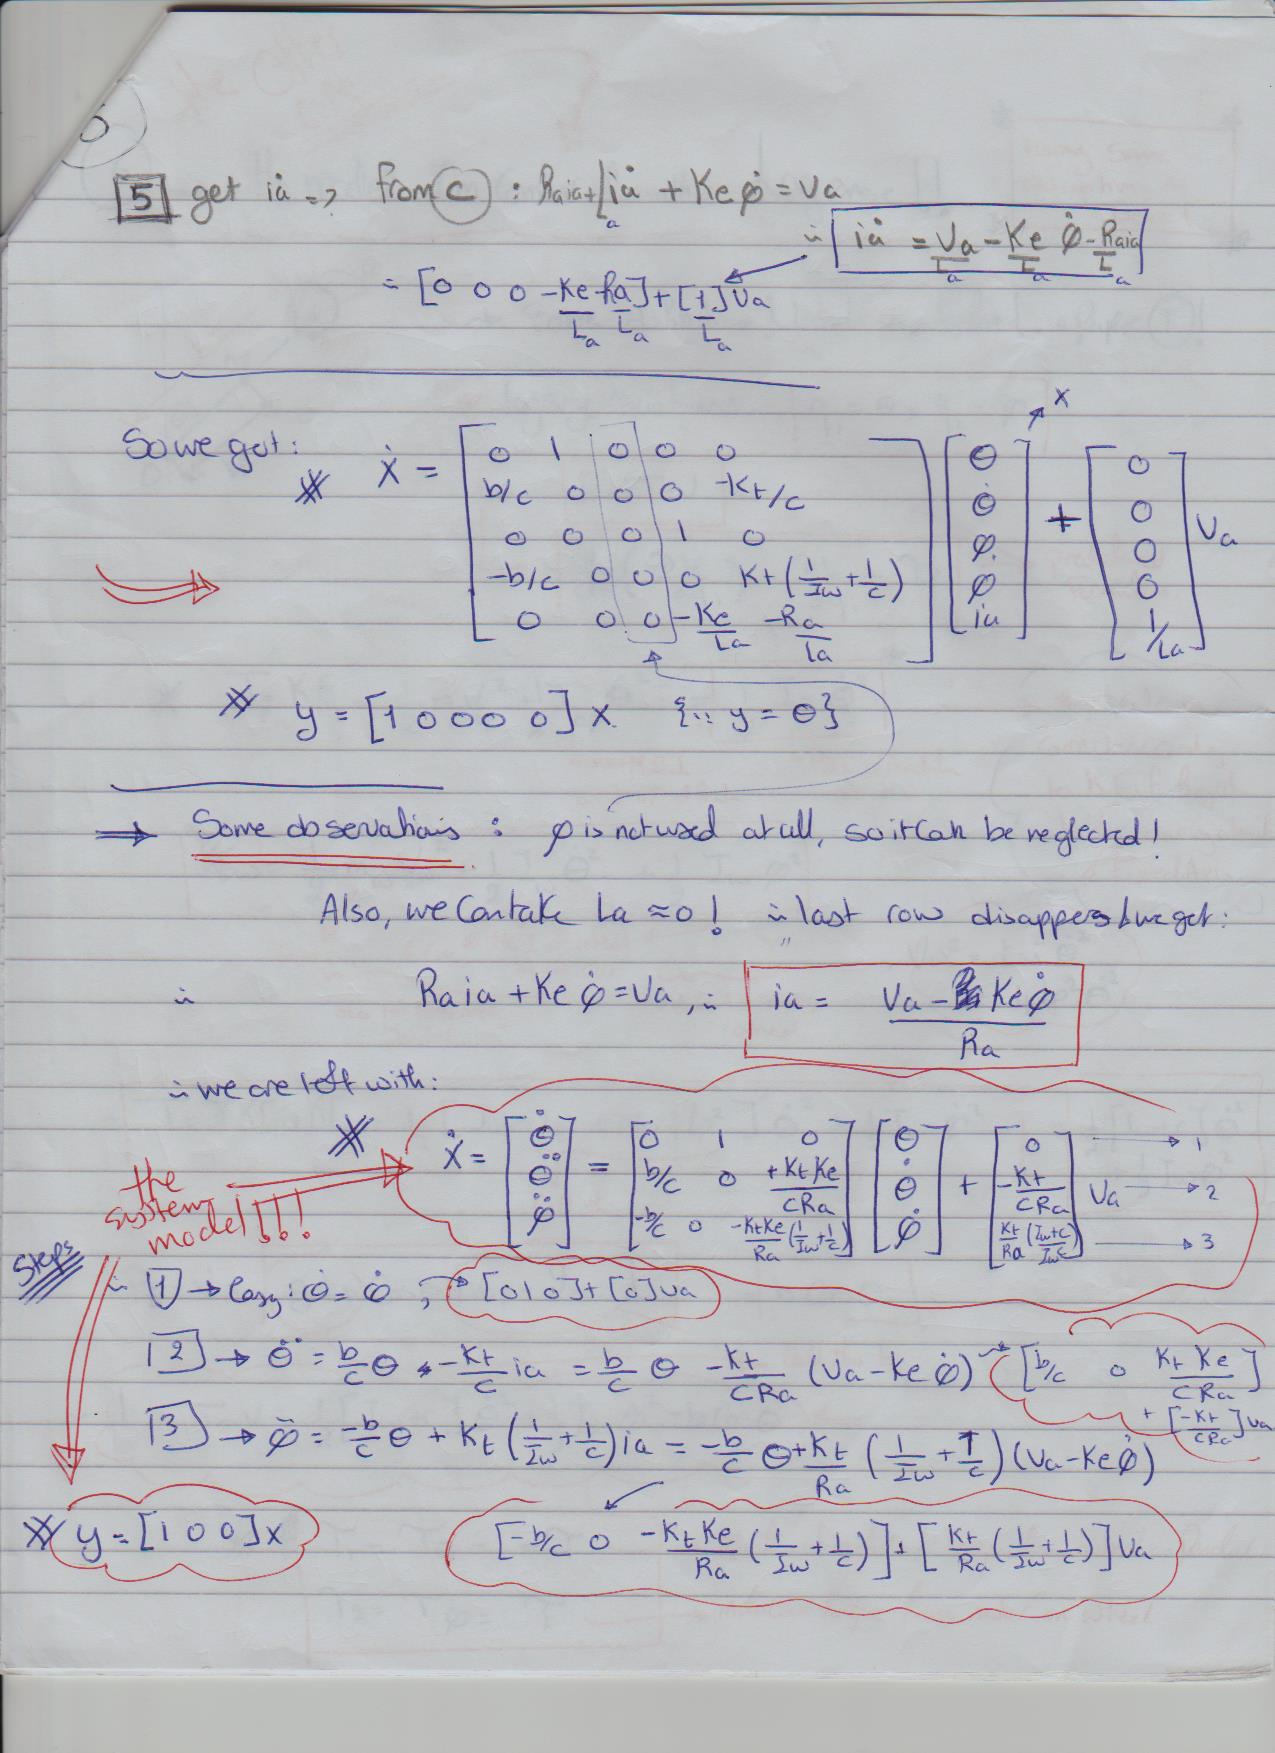 5 get i̇a => from C : Raia + La i̇a + Ke φ̇ = Va
∴ i̇a = Va/La - Ke/La φ̇ - Raia/La
= [0 0 0 -Ke/La -Ra/La] + [1/La] Va
So we get:
※ Ẋ = [0 1 0 0 0 ; b/c 0 0 0 -Kt/c ; 0 0 0 1 0 ; -b/c 0 0 0 Kt(1/Iw + 1/c) ; 0 0 0 -Ke/La -Ra/La] [θ ; θ̇ ; φ ; φ̇ ; ia] → x + [0 ; 0 ; 0 ; 0 ; 1/La] Va
※ y = [1 0 0 0 0] x {∵ y = θ}
⇒ Some observations : φ is not used at all, so it can be neglected!
Also, we can take La ≈ 0 ! ∴ last row disappers & we get:
∴ Raia + Ke φ̇ = Va, ∴ ia = (Va - Ke φ̇)/Ra
∴ we are left with:
※ Ẋ = [θ̇ ; θ̈ ; φ̈] = [0 1 0 ; b/c 0 +KtKe/CRa ; -b/c 0 -KtKe/Ra (1/Iw + 1/c)] [θ ; θ̇ ; φ̇] + [0 ; -Kt/CRa ; Kt/Ra (Iw+c/Iwc)] Va → 1 → 2 → 3
the system model!!!
Steps
∴ 1 → Easy : θ̇ = θ̇ , → [0 1 0] + [0] Va
2 → θ̈ = b/c θ - Kt/c ia = b/c θ - Kt/CRa (Va - Ke φ̇) → [b/c 0 KtKe/CRa]
+ [-Kt/CRa] Va
3 → φ̈ = -b/c θ + Kt (1/Iw + 1/c) ia = -b/c θ + Kt/Ra (1/Iw + 1/c) (Va - Ke φ̇)
※ y = [1 0 0] x
[-b/c 0 -KtKe/Ra (1/Iw + 1/c)] + [Kt/Ra (1/Iw + 1/c)] Va